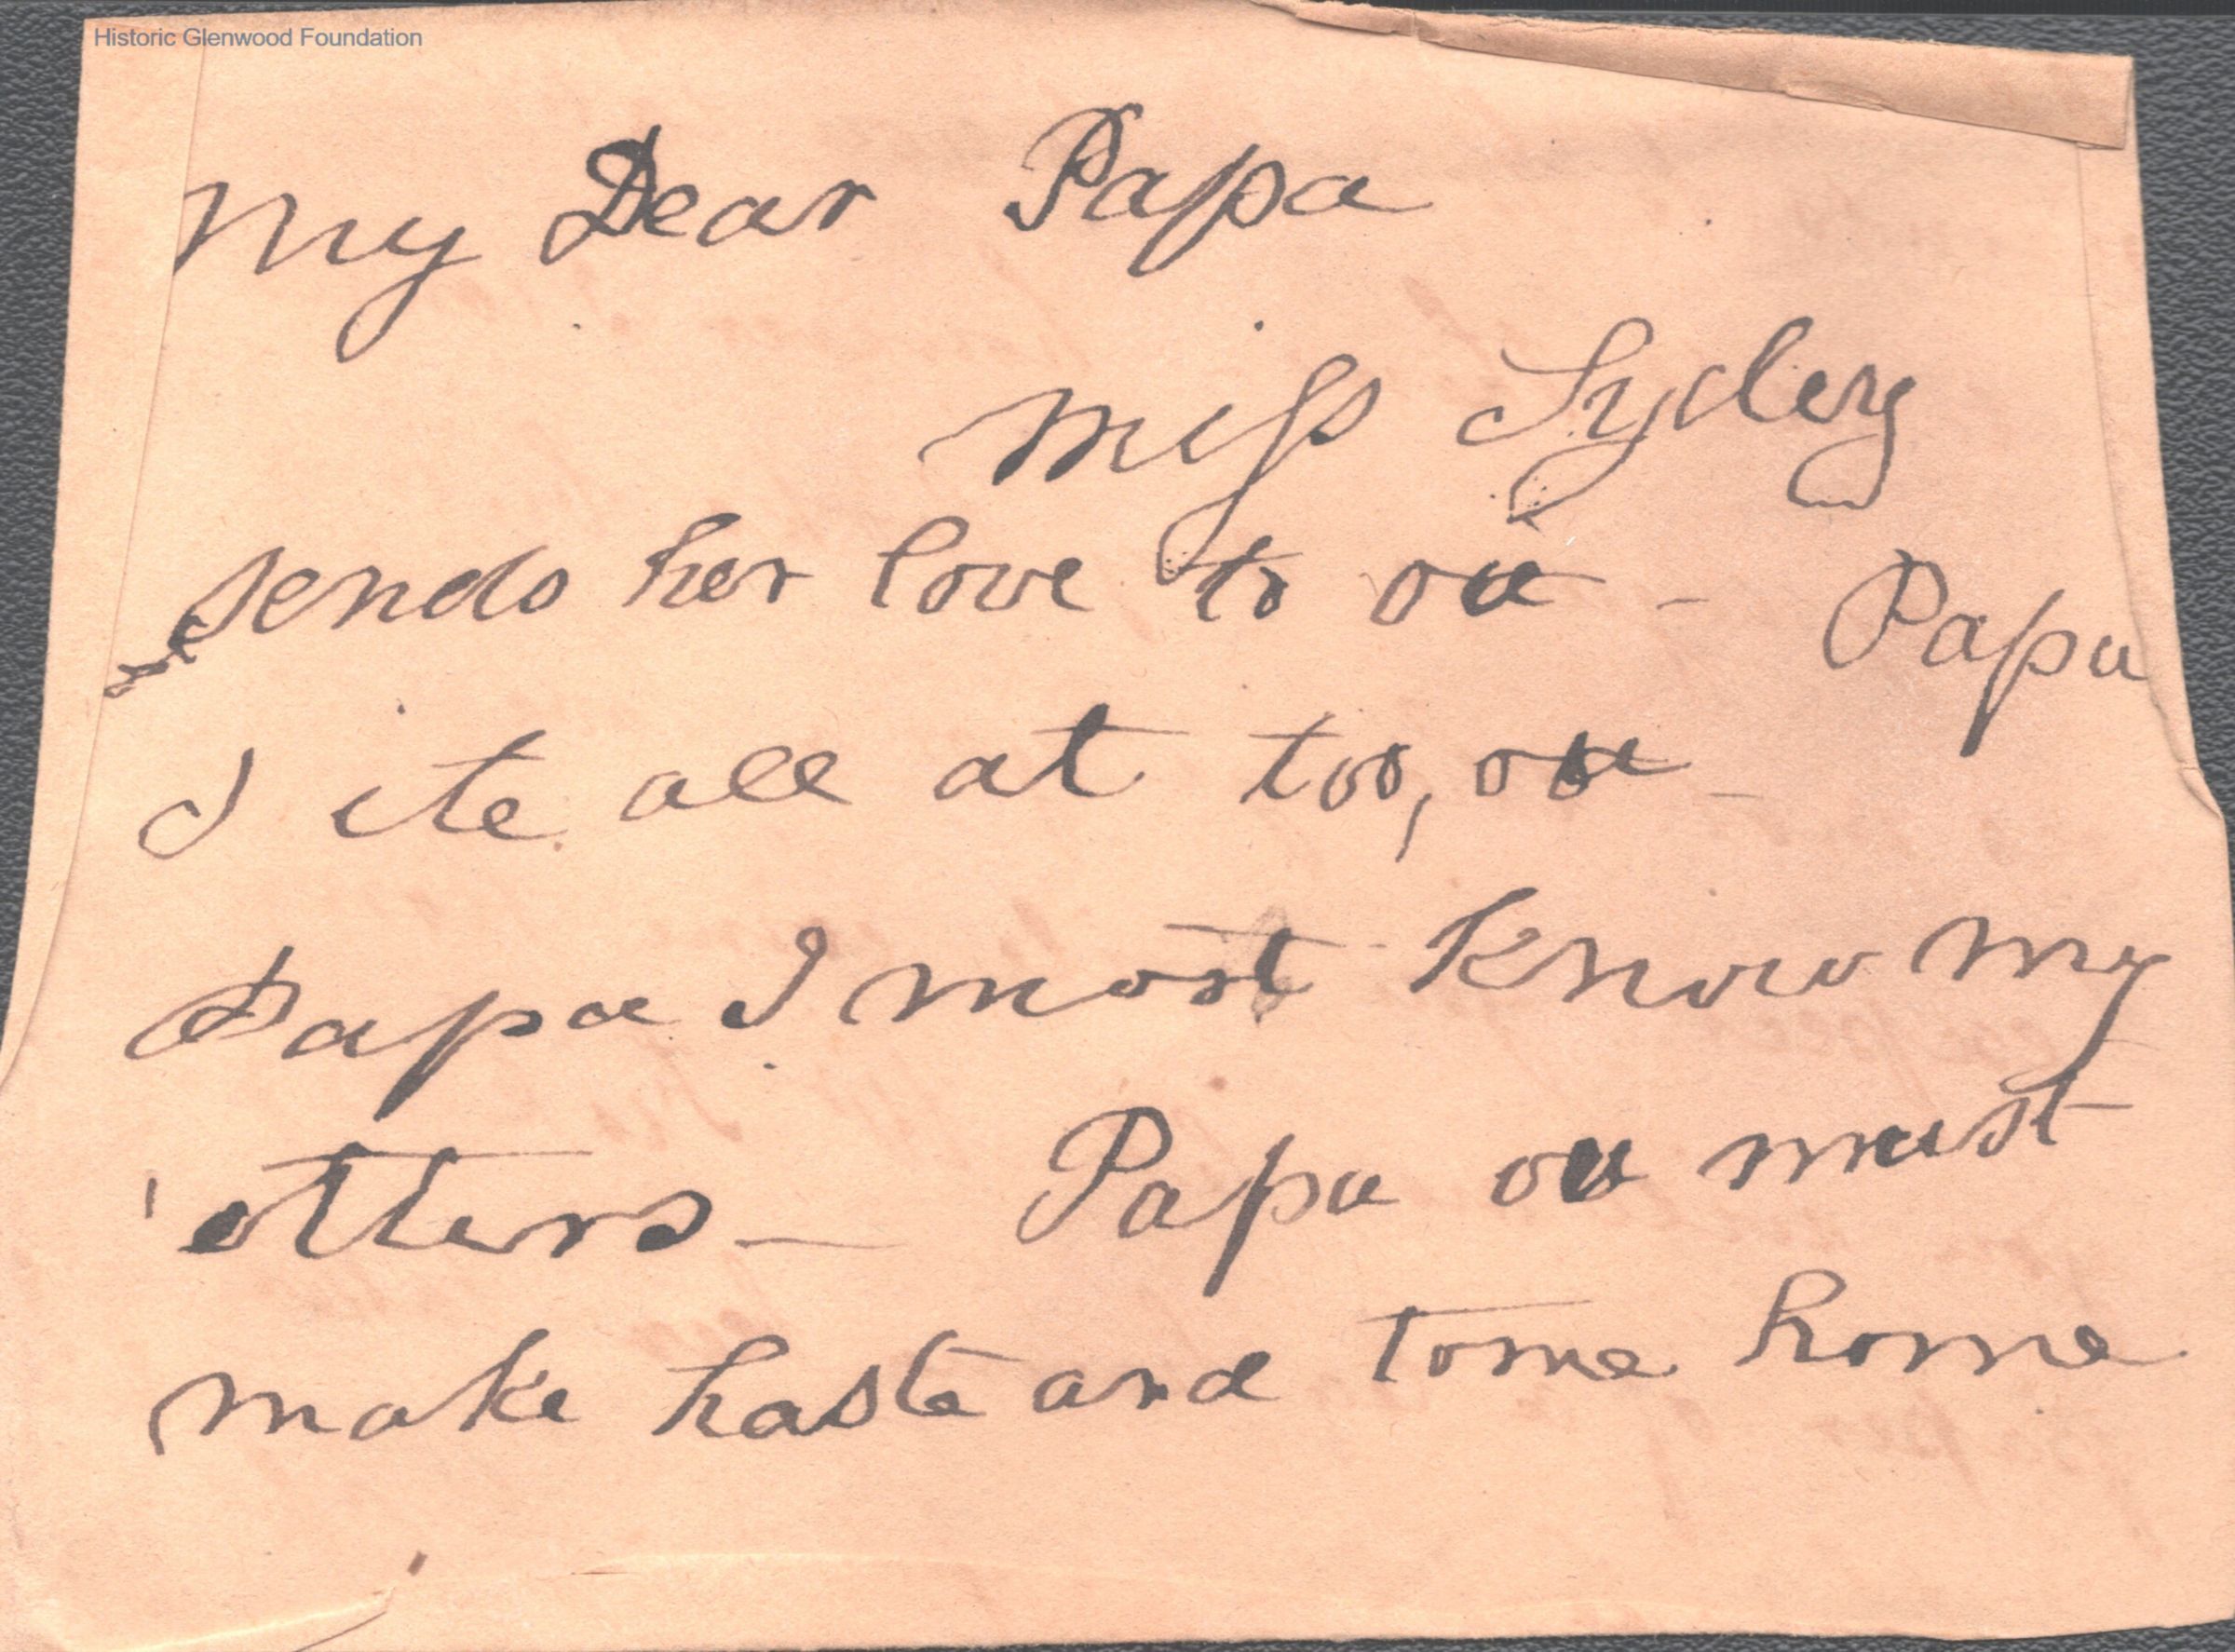 Historic Glenwood Foundation
My Dear Papa
Miss Sydeny
sends her love to ou - Papa
I ite all at too, ou -
Papa I most know my
'etters - Papa ou must
make haste and tome home